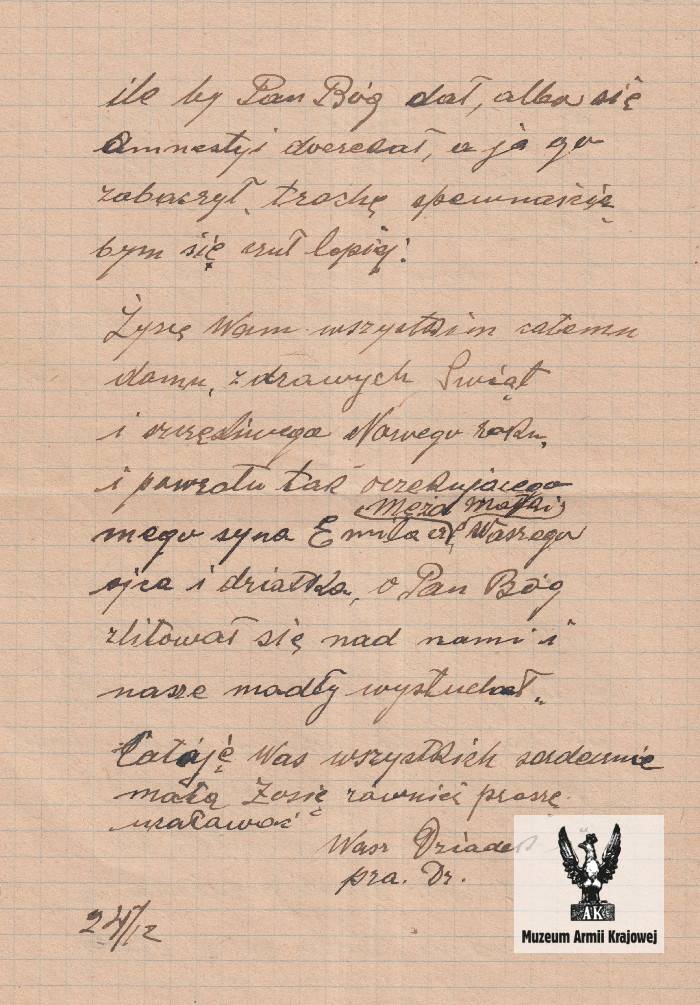 ile by Pan Bóg dał, albo się
Amnestyi doczekał, a ja go
zobaczył, trochę spewnością
bym się czuł lepię!
Życzę Wam wszystkim całemu
domu, zdrawych Swiąt
i szczęśliwego Nowego roku,
i powrotu tak oczekującego
Męża Matki
mego syna Emila Waszego
ojca i dziatka, o Pan Bóg
zlitował się nad nami i
nasze modły wysłuchał,,
Całóję Was wszystkich serdecznie
małą Zosię rawnież proszę
ucałować
Wasz Dziadek
pra. Dz.
24/12
AK
Muzeum Armii Krajowej